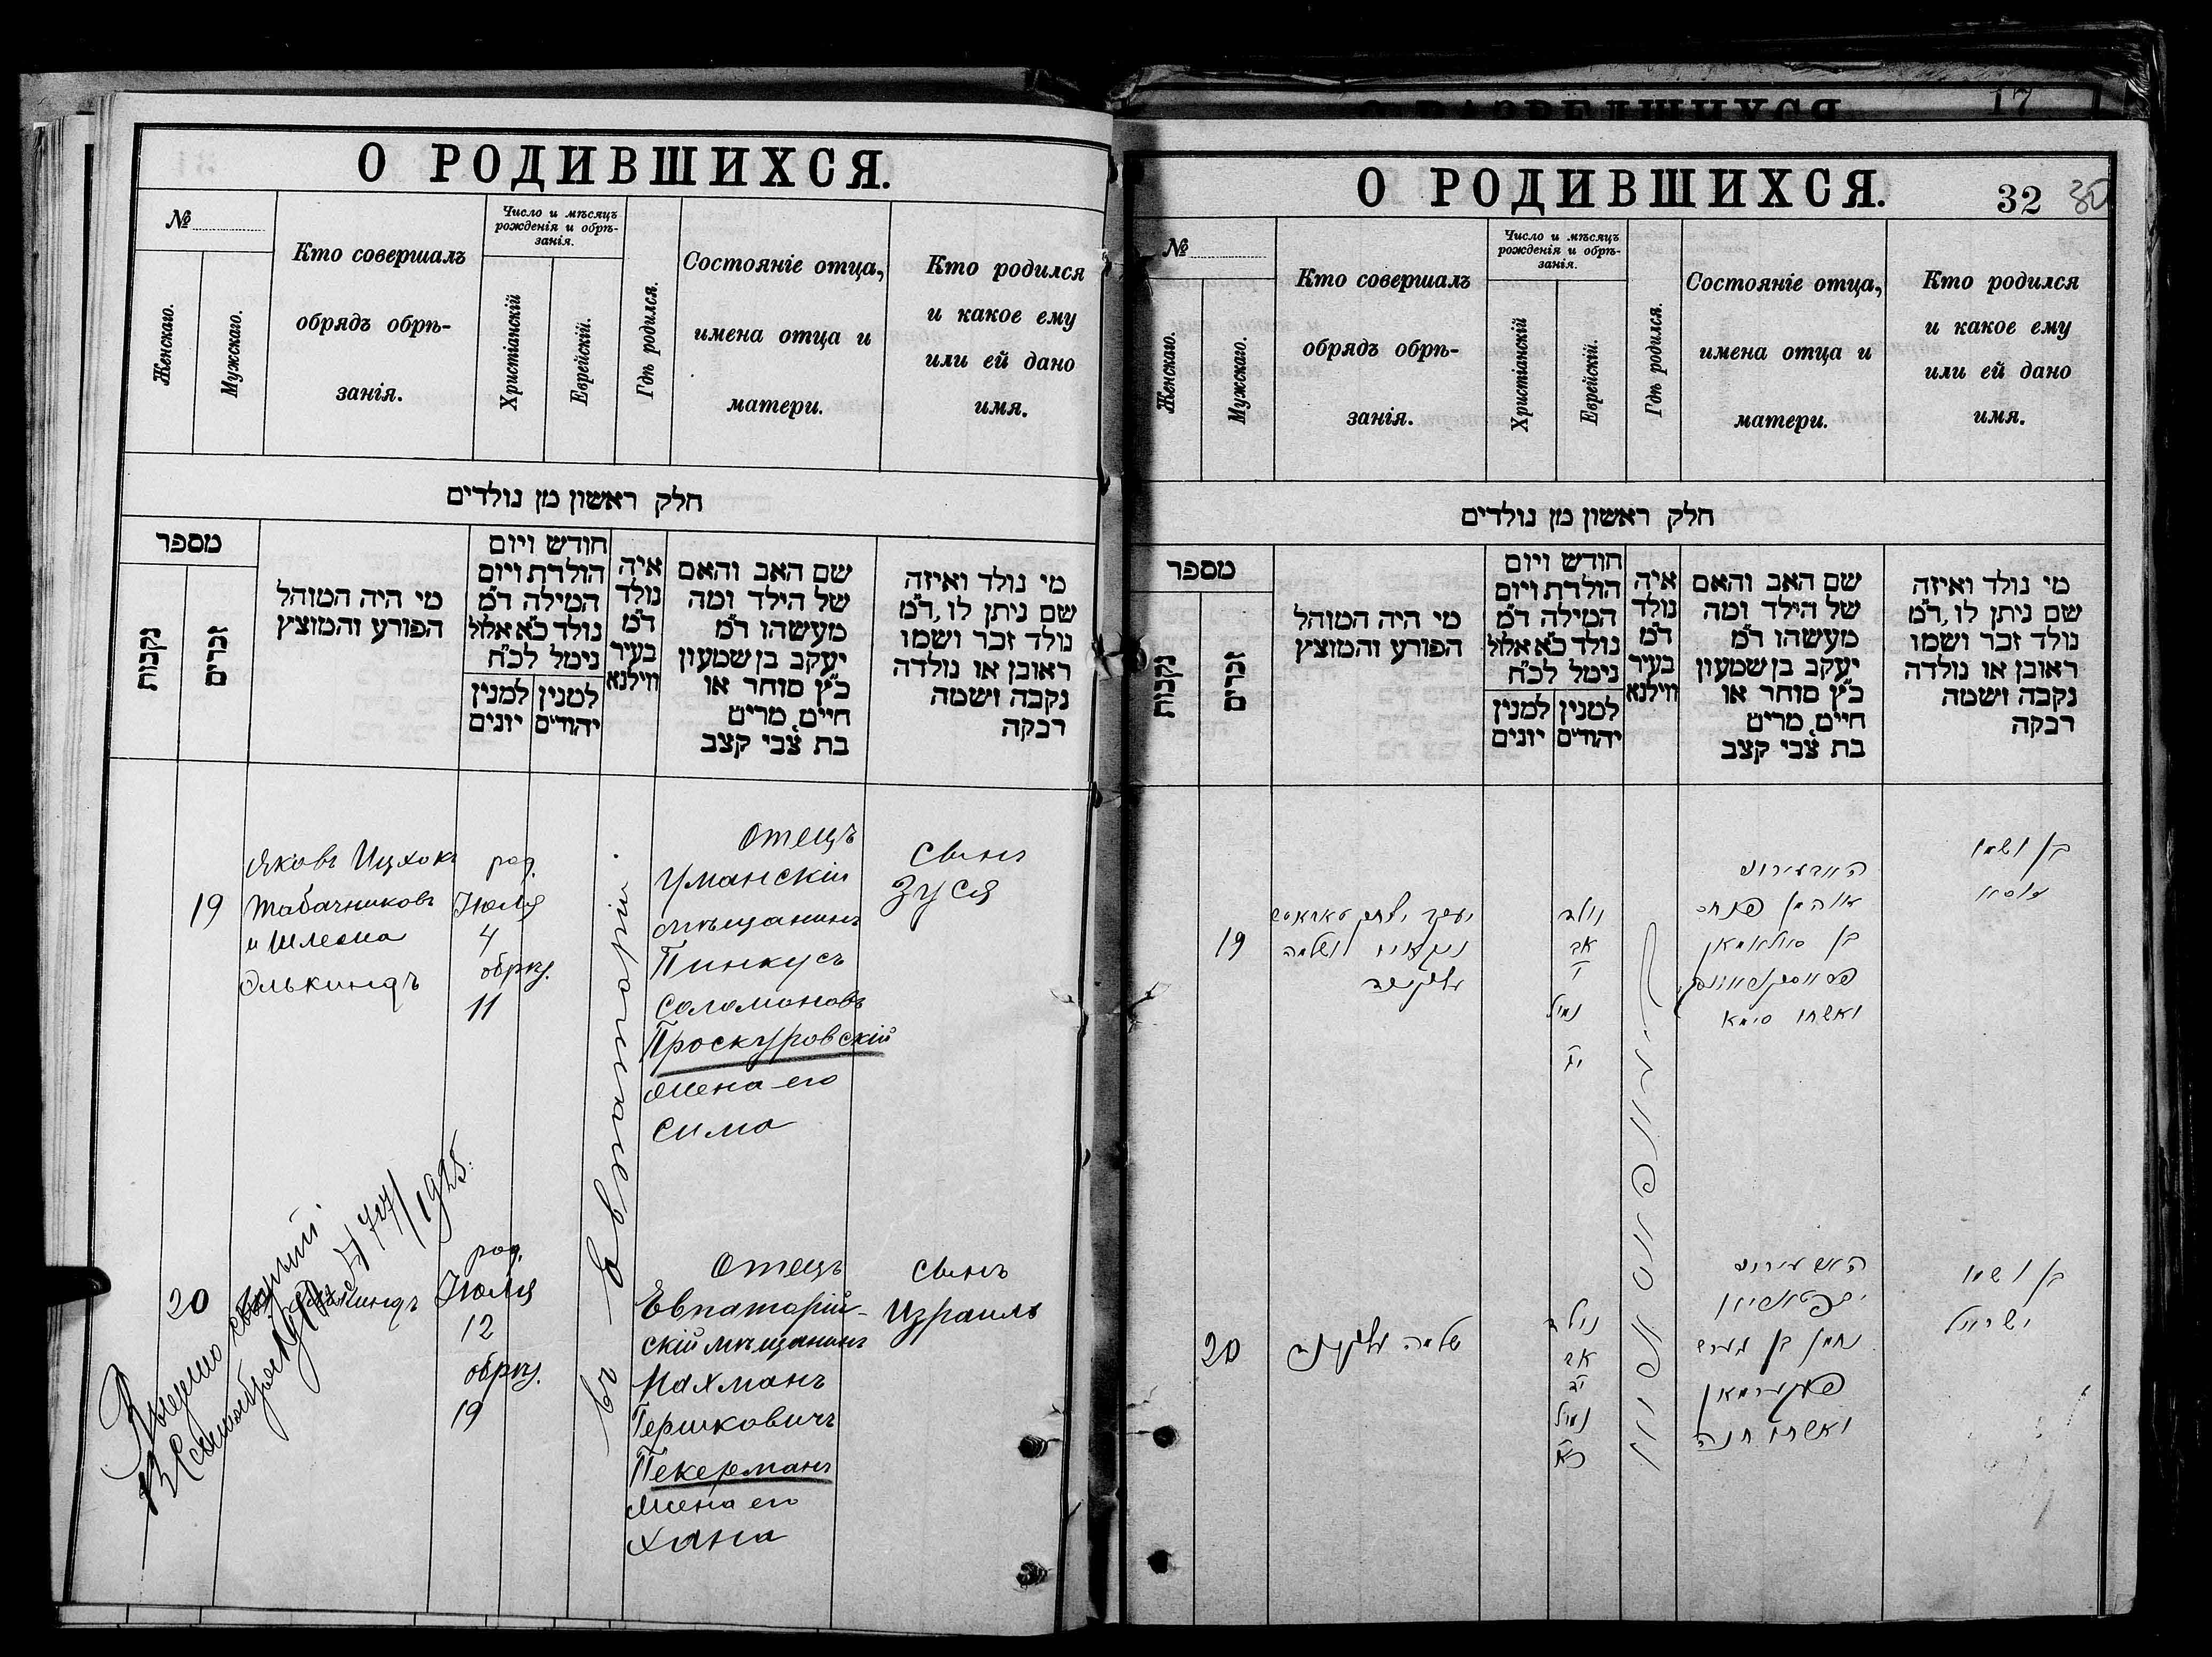 О РОДИВШИХСЯ.
№
Женскаго.
Мужскаго.
Кто совершалъ
обрядъ обрѣ-
занія.
Число и мѣсяцъ
рожденія и обрѣ-
занія.
Христіанскій
Еврейскій.
Гдѣ родился.
Состояніе отца,
имена отца и
матери.
Кто родился
и какое ему
или ей дано
имя.
חלק ראשון מן נולדים
מספר
נקבות
זכרים
מי היה המוהל
הפורע והמוצץ
חודש ויום
הולדת ויום
המילה ד״מ
נולד כ״א אלול
נימל לכ״ח
למנין יהודים
למנין יונים
איה
נולד
ד״מ
בעיר
ווילנא
שם האב והאם
של הילד ומה
מעשהו ד״מ
יעקב בן שמעון
כ״ץ סוחר או
חייט, מרים
בת צבי קצב
מי נולד ואיזה
שם ניתן לו, ד״מ
נולד זכר ושמו
ראובן או נולדה
נקבה ושמה
רבקה
19
Яковъ Ицхокъ
Табачниковъ
и Шлема
Элькиндъ
род.
Іюля
4
обрѣз.
11
въ Евпаторіи
Отецъ
Уманскій
мѣщанинъ
Пинкусъ
Соломоновъ
Проскуровскій
жена его
Сима
Сынъ
Зуся
20
Элькиндъ
род.
Іюля
12
обрѣз.
19
Отецъ
Евпаторій-
скій мѣщанинъ
Нахманъ
Гершковичъ
Пекерманъ
жена его
Хана
Сынъ
Израиль
1925.
17
О РОДИВШИХСЯ.
32
№
Женскаго.
Мужскаго.
Кто совершалъ
обрядъ обрѣ-
занія.
Число и мѣсяцъ
рожденія и обрѣ-
занія.
Христіанскій
Еврейскій.
Гдѣ родился.
Состояніе отца,
имена отца и
матери.
Кто родился
и какое ему
или ей дано
имя.
חלק ראשון מן נולדים
מספר
נקבות
זכרים
מי היה המוהל
הפורע והמוצץ
חודש ויום
הולדת ויום
המילה ד״מ
נולד כ״א אלול
נימל לכ״ח
למנין יהודים
למנין יונים
איה
נולד
ד״מ
בעיר
ווילנא
שם האב והאם
של הילד ומה
מעשהו ד״מ
יעקב בן שמעון
כ״ץ סוחר או
חייט, מרים
בת צבי קצב
מי נולד ואיזה
שם ניתן לו, ד״מ
נולד זכר ושמו
ראובן או נולדה
נקבה ושמה
רבקה
19
יעקב יצחק
ושלמה
נולד
אב
נימול
ואשתו סימא
בן ושמו
20
שלמה עלקינד
נולד
אב
נימול
נחמן בן
פעקערמאן
ואשתו חנה
בן ושמו
ישראל